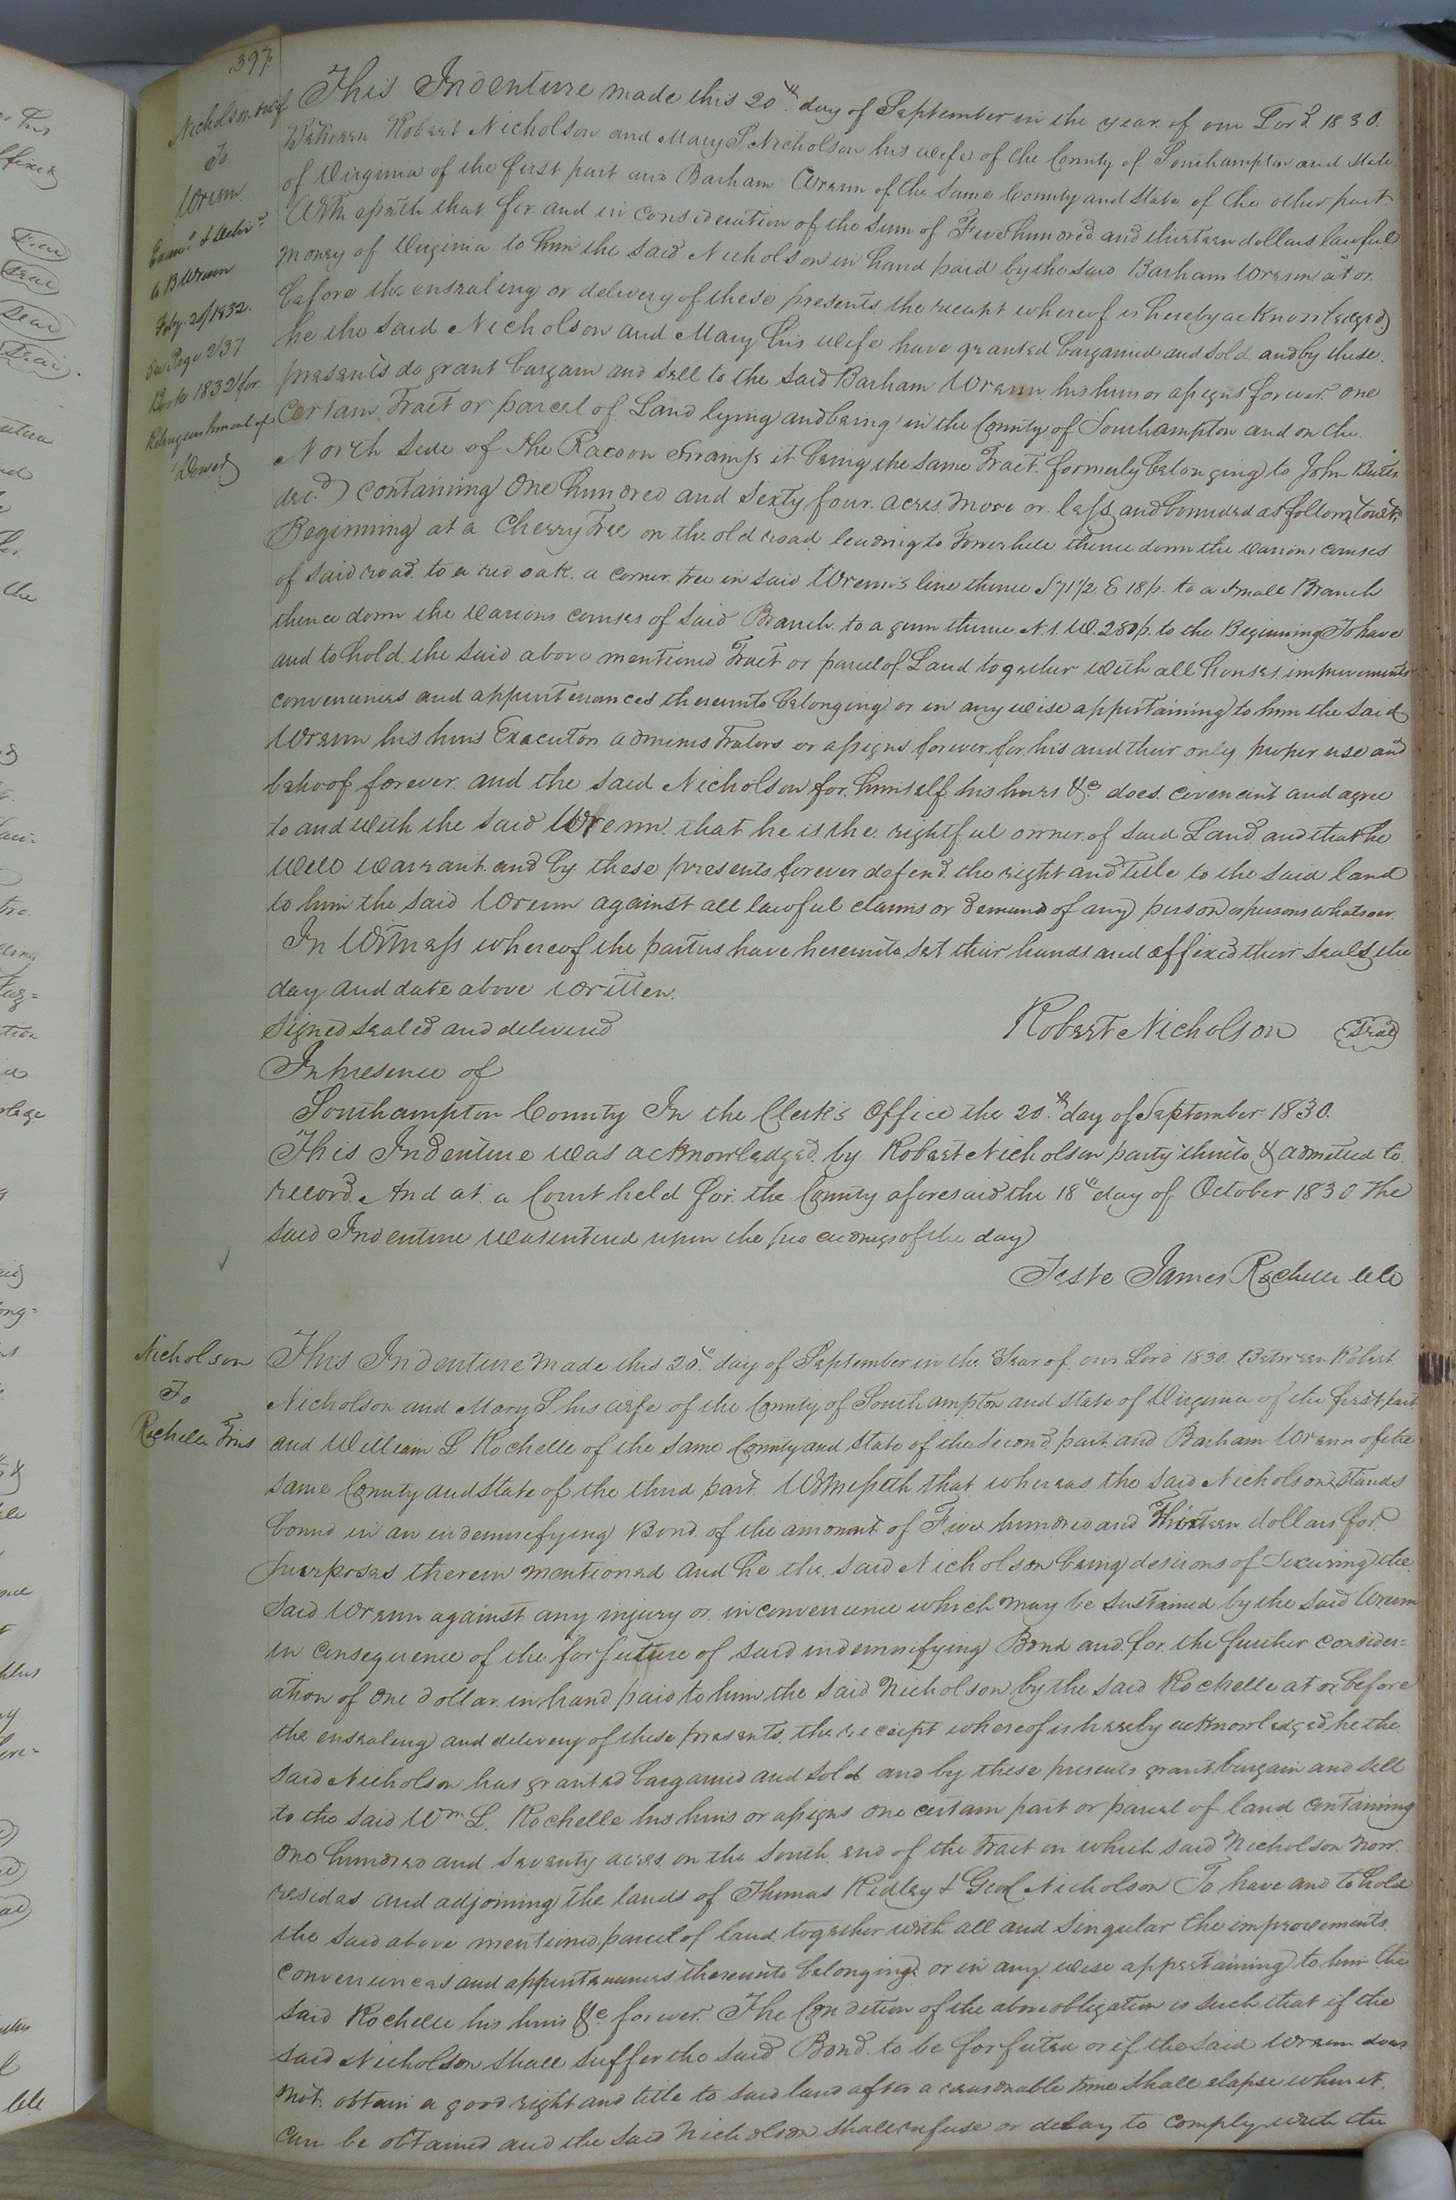 397
Nicholson &
To
Wrenn
Exam.d & Deliv.d
to B Wrenn
Feby 20/1832.
See Page 237
Book 1832 for
Relinquishment of
Dower
This Indenture made this 20th day of September in the year of our Lord 1830.
Between Robert Nicholson and Mary S Nicholson his wife of the County of Southampton and State
of Virginia of the first part and Barham Wrenn of the same County and State of the other part
Witnesseth that for and in consideration of the sum of Five hundred and thirteen dollars lawful
money of Virginia to him the said Nicholson in hand paid by the said Barham Wrenn at or
before the ensealing or delivery of these presents the receipt whereof is hereby acknowledged
he the said Nicholson and Mary his wife have granted bargained and sold and by these
presents do grant bargain and sell to the said Barham Wrenn his heirs or assigns forever one
certain Tract or parcel of Land lying and being in the County of Southampton and on the
North side of the Racoon Swamp it being the same Tract formerly belonging to John
dec.d containing One hundred and sixty four acres more or less and bounded as follows towit,
Beginning at a Cherry Tree on the old road leading to thence down the various courses
of said road to a red oak a corner tree in said Wrenn's line thence S 71 1/2 E 18 p. to a small Branch
thence down the various courses of said Branch to a gum thence N. 1. W. 280 p. to the Beginning To have
and to hold the said above mentioned Tract or parcel of Land together with all houses improvements
conveniences and appurtenances thereunto belonging or in any wise appertaining to him the said
Wrenn his heirs Executors administrators or assigns forever for his and their only proper use and
behoof forever and the said Nicholson for himself his heirs &c does covenant and agree
to and with the said Wrenn that he is the rightful owner of said Land and that he
will warrant and by these presents forever defend the right and title to the said land
to him the said Wrenn against all lawful claims or demand of any person or persons whatsoever.
In Witness whereof the parties have hereunto set their hands and affixed their seals the
day and date above written.
Signed sealed and delivered
Robert Nicholson Seal
In presence of
Southampton County In the Clerk's Office the 20th day of September 1830.
This Indenture was acknowledged by Robert Nicholson party thereto & admitted to
record. And at a Court held for the County aforesaid the 18th day of October 1830 The
said Indenture was entered upon the proceedings of the day
Teste James Rochelle clc
Nicholson
To
Rochelle Trus
This Indenture made this 20th day of September in the Year of our Lord 1830. Between Robert
Nicholson and Mary S his wife of the County of Southampton and State of Virginia of the first part
and William L Rochelle of the same County and State of the second part and Barham Wrenn of the
same County and State of the third part Witnesseth that whereas the said Nicholson stands
bound in an indemnifying Bond of the amount of Five hundred and Thirteen dollars for
purposes therein mentioned and he the said Nicholson being desirous of securing the
said Wrenn against any injury or inconvenience which may be sustained by the said Wrenn
in consequence of the forfeiture of said indemnifying Bond and for the further consider=
ation of one dollar in hand paid to him the said Nicholson by the said Rochelle at or before
the ensealing and delivery of these presents, the receipt whereof is hereby acknowledged, he the
said Nicholson has granted bargained and sold and by these presents grant bargain and sell
to the said Wm L. Rochelle his heirs or assigns one certain part or parcel of land containing
one hundred and seventy acres on the south end of the tract on which said Nicholson now
resides and adjoining the lands of Thomas Ridley & Nicholson To have and to hold
the said above mentioned parcel of land together with all and singular the improvements
conveniences and appurtenances thereunto belonging or in any wise appertaining to him the
said Rochelle his heirs &c forever. The Condition of the above obligation is such that if the
said Nicholson shall suffer the said Bond to be forfeited or if the said Wrenn does
not obtain a good right and title to said land after a reasonable time shall elapse when it
can be obtained and the said Nicholson shall refuse or delay to comply with the